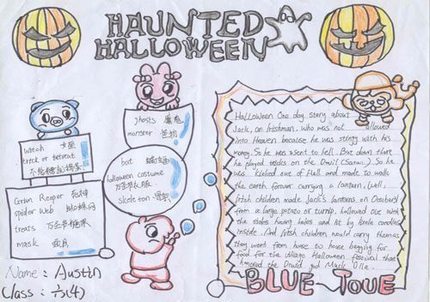 HAUNTED
HALLOWEEN
witch 女巫
trick or
不给糖就捣蛋
Grim Reaper 死神
spider web 蜘蛛网
treats
mask 面具
ghosts 魔鬼
monster 怪物
bat 蝙蝠
halloween costume
万圣节衣服
skeleton
Halloween One day story about
Jack, an Irishman, who was not allowed
into Heaven because he was stingy with his
money. So he was sent to hell. But down there
he played tricks on the Devil (Satan). So he
was kicked out of Hell and made to walk
the earth forever carrying a lantern.
Irish children made Jack's lanterns on October
from a large potato or turnip, hollowed out with
the sides having holes and lit by little candles
inside. And Irish children would carry them
as they went from house to house begging for
food for the village Halloween festival that
honored the Druid god Muck Olla.
BLUE TOUE
Name: Austin
Class: 六(4)